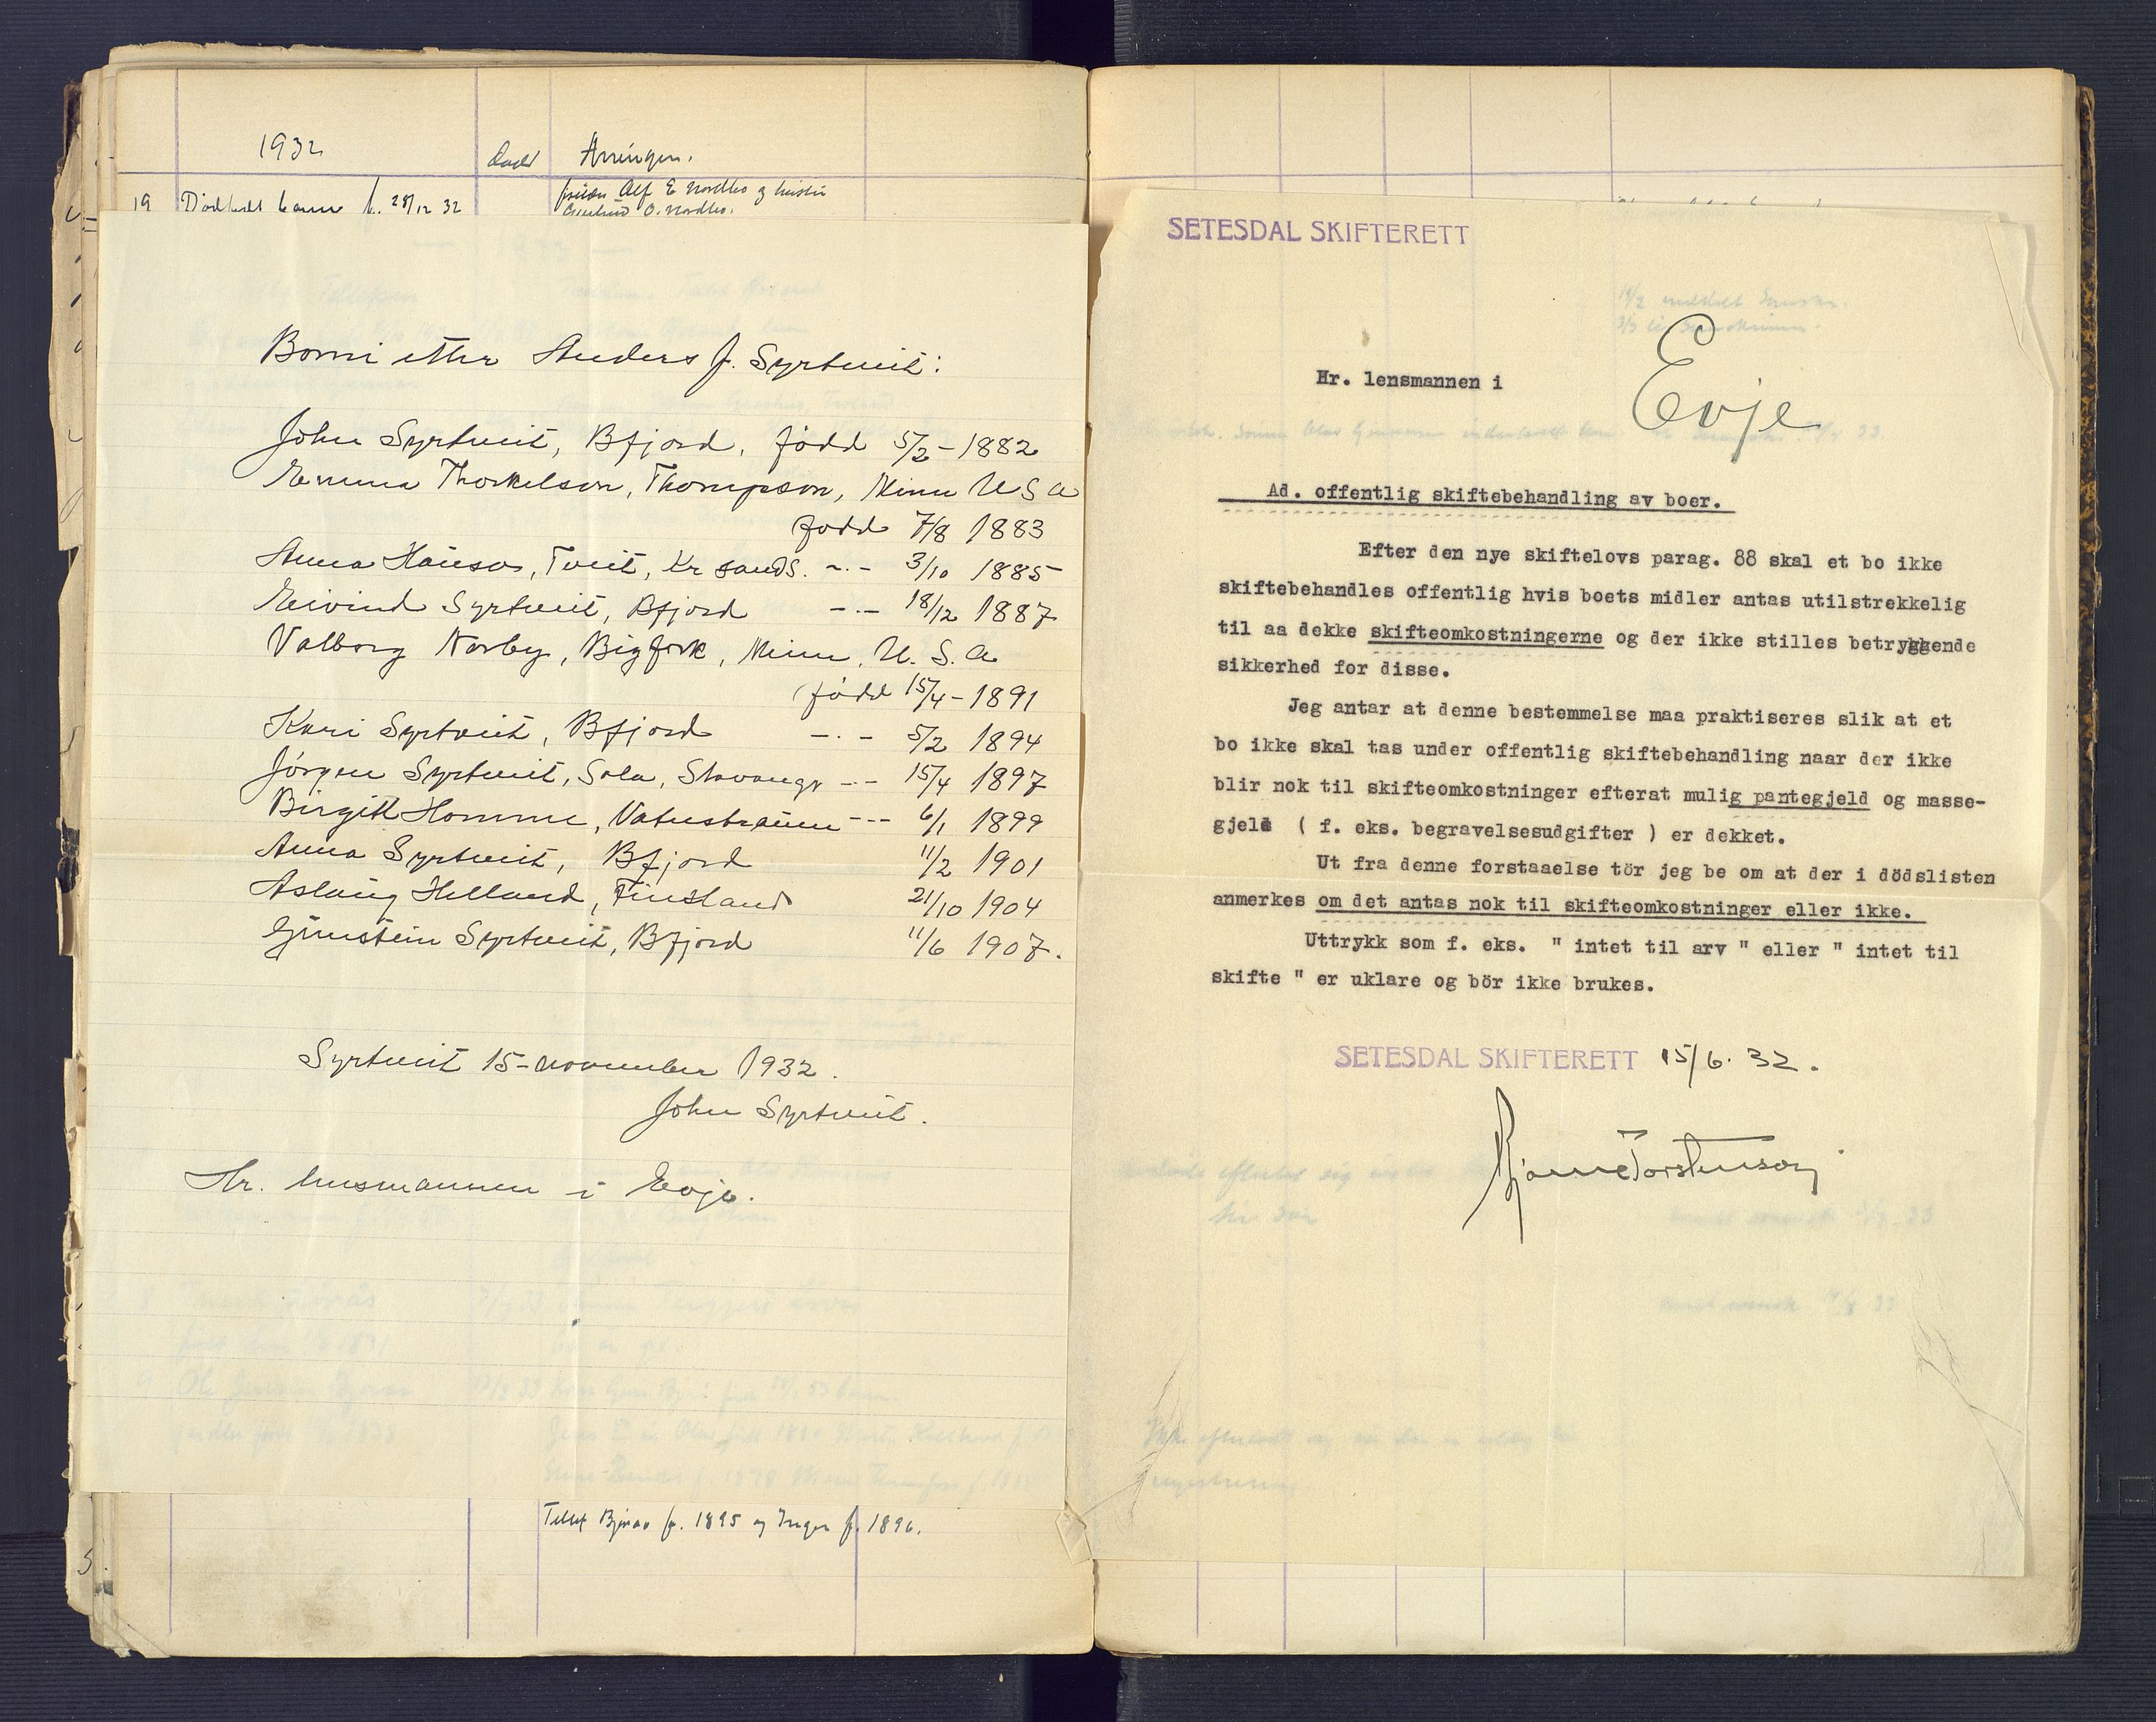 1932
Arvingen.
19 Dødfødt barn f. 28/12 32
Alf E Nordbo og hustru
O. Nordbo.
Borni etter Anders J. Syrtveit:
John Syrtveit, Bfjord, född 5/2-1882
Emma Thorkelson, Thompson, Minn U S A
född 7/8 1883
Anna Hanson, Tveit, Kr sands. -.- 3/10 1885
Eivind Syrtveit, Bfjord -.- 18/12 1887
Valborg Norby, Bigfork, Minn. U. S. A
(född 15/4-1891
Kari Syrtveit, Bfjord -.- 5/2 1894
Jörgen Syrtveit, Sola, Stavanger -.- 15/4 1897
Birgitt Homme, Vatnstraum -.- 6/1 1899
Anna Syrtveit, Bfjord 11/2 1901
Aslaug Helland, Finsland 21/10 1904
Gunstein Syrtveit, Bfjord 11/6 1907.
Syrtveit 15-november 1932.
John Syrtveit.
Hr. lensmannen i Evje.
f. 1895 og Inger f. 1896.
SETESDAL SKIFTERETT
Hr. lensmannen i Evje
Ad. offentlig skiftebehandling av boer.
Efter den nye skiftelovs parag. 88 skal et bo ikke
skiftebehandles offentlig hvis boets midler antas utilstrekkelig
til aa dekke skifteomkostningerne og der ikke stilles betryggende
sikkerhed for disse.
Jeg antar at denne bestemmelse maa praktiseres slik at et
bo ikke skal tas under offentlig skiftebehandling naar der ikke
blir nok til skifteomkostninger efterat mulig pantegjeld og masse-
gjeld ( f. eks. begravelsesudgifter ) er dekket.
Ut fra denne forstaaelse tör jeg be om at der i dödslisten
anmerkes om det antas nok til skifteomkostninger eller ikke.
Uttrykk som f. eks. " intet til arv " eller " intet til
skifte " er uklare og bör ikke brukes.
SETESDAL SKIFTERETT 15/6. 32.
Bjarne Torstenson